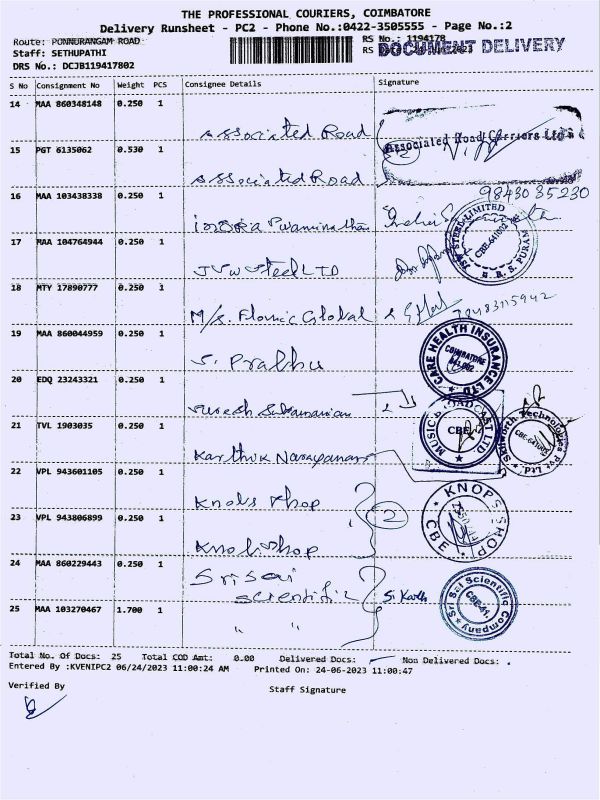 THE PROFESSIONAL COURIERS, COIMBATORE
Delivery Runsheet - PC2 - Phone No.:0422-3505555 - Page No.:2
Route: PONNURANGAM ROAD
RS No.: 1194178
Staff: SETHUPATHI
RS
DOCUMENT DELIVERY
DRS No.: DCJB119417802
S No Consignment No Weight PCS Consignee Details Signature
14 MAA 860348148 0.250 1 Associated Road
Associated Road Carriers Ltd
15 PGT 6135062 0.530 1 Associated Road
16 MAA 103438338 0.250 1
9843035230
17 MAA 104764944 0.250 1 JSW Steel LTD
JSW STEEL LIMITED CBE-641002 R.S. PURAM
18 MTY 17890777 0.250 1 M/s. Global
19 MAA 860044959 0.250 1 S. Prabhu
CARE HEALTH INSURANCE LTD COIMBATORE 641.002
20 EDQ 23243321 0.250 1 Suresh Subramanian
21 TVL 1903035 0.250 1 Karthik Narayanan
MUSIC BROADCAST LTD CBE
Skilworth Technologies Pvt. Ltd
22 VPL 943601105 0.250 1 Knobs Shop
2
KNOPS SHOP CBE
23 VPL 943806899 0.250 1 Knob Shop
24 MAA 860229443 0.250 1 Sri Sai
scientific
Sri Sai Scientific Company CBE-41.
25 MAA 103270467 1.700 1 " "
Total No. Of Docs: 25 Total COD Amt: 0.00 Delivered Docs: Non Delivered Docs:
Entered By :KVENIPC2 06/24/2023 11:00:24 AM Printed On: 24-06-2023 11:00:47
Verified By
Staff Signature